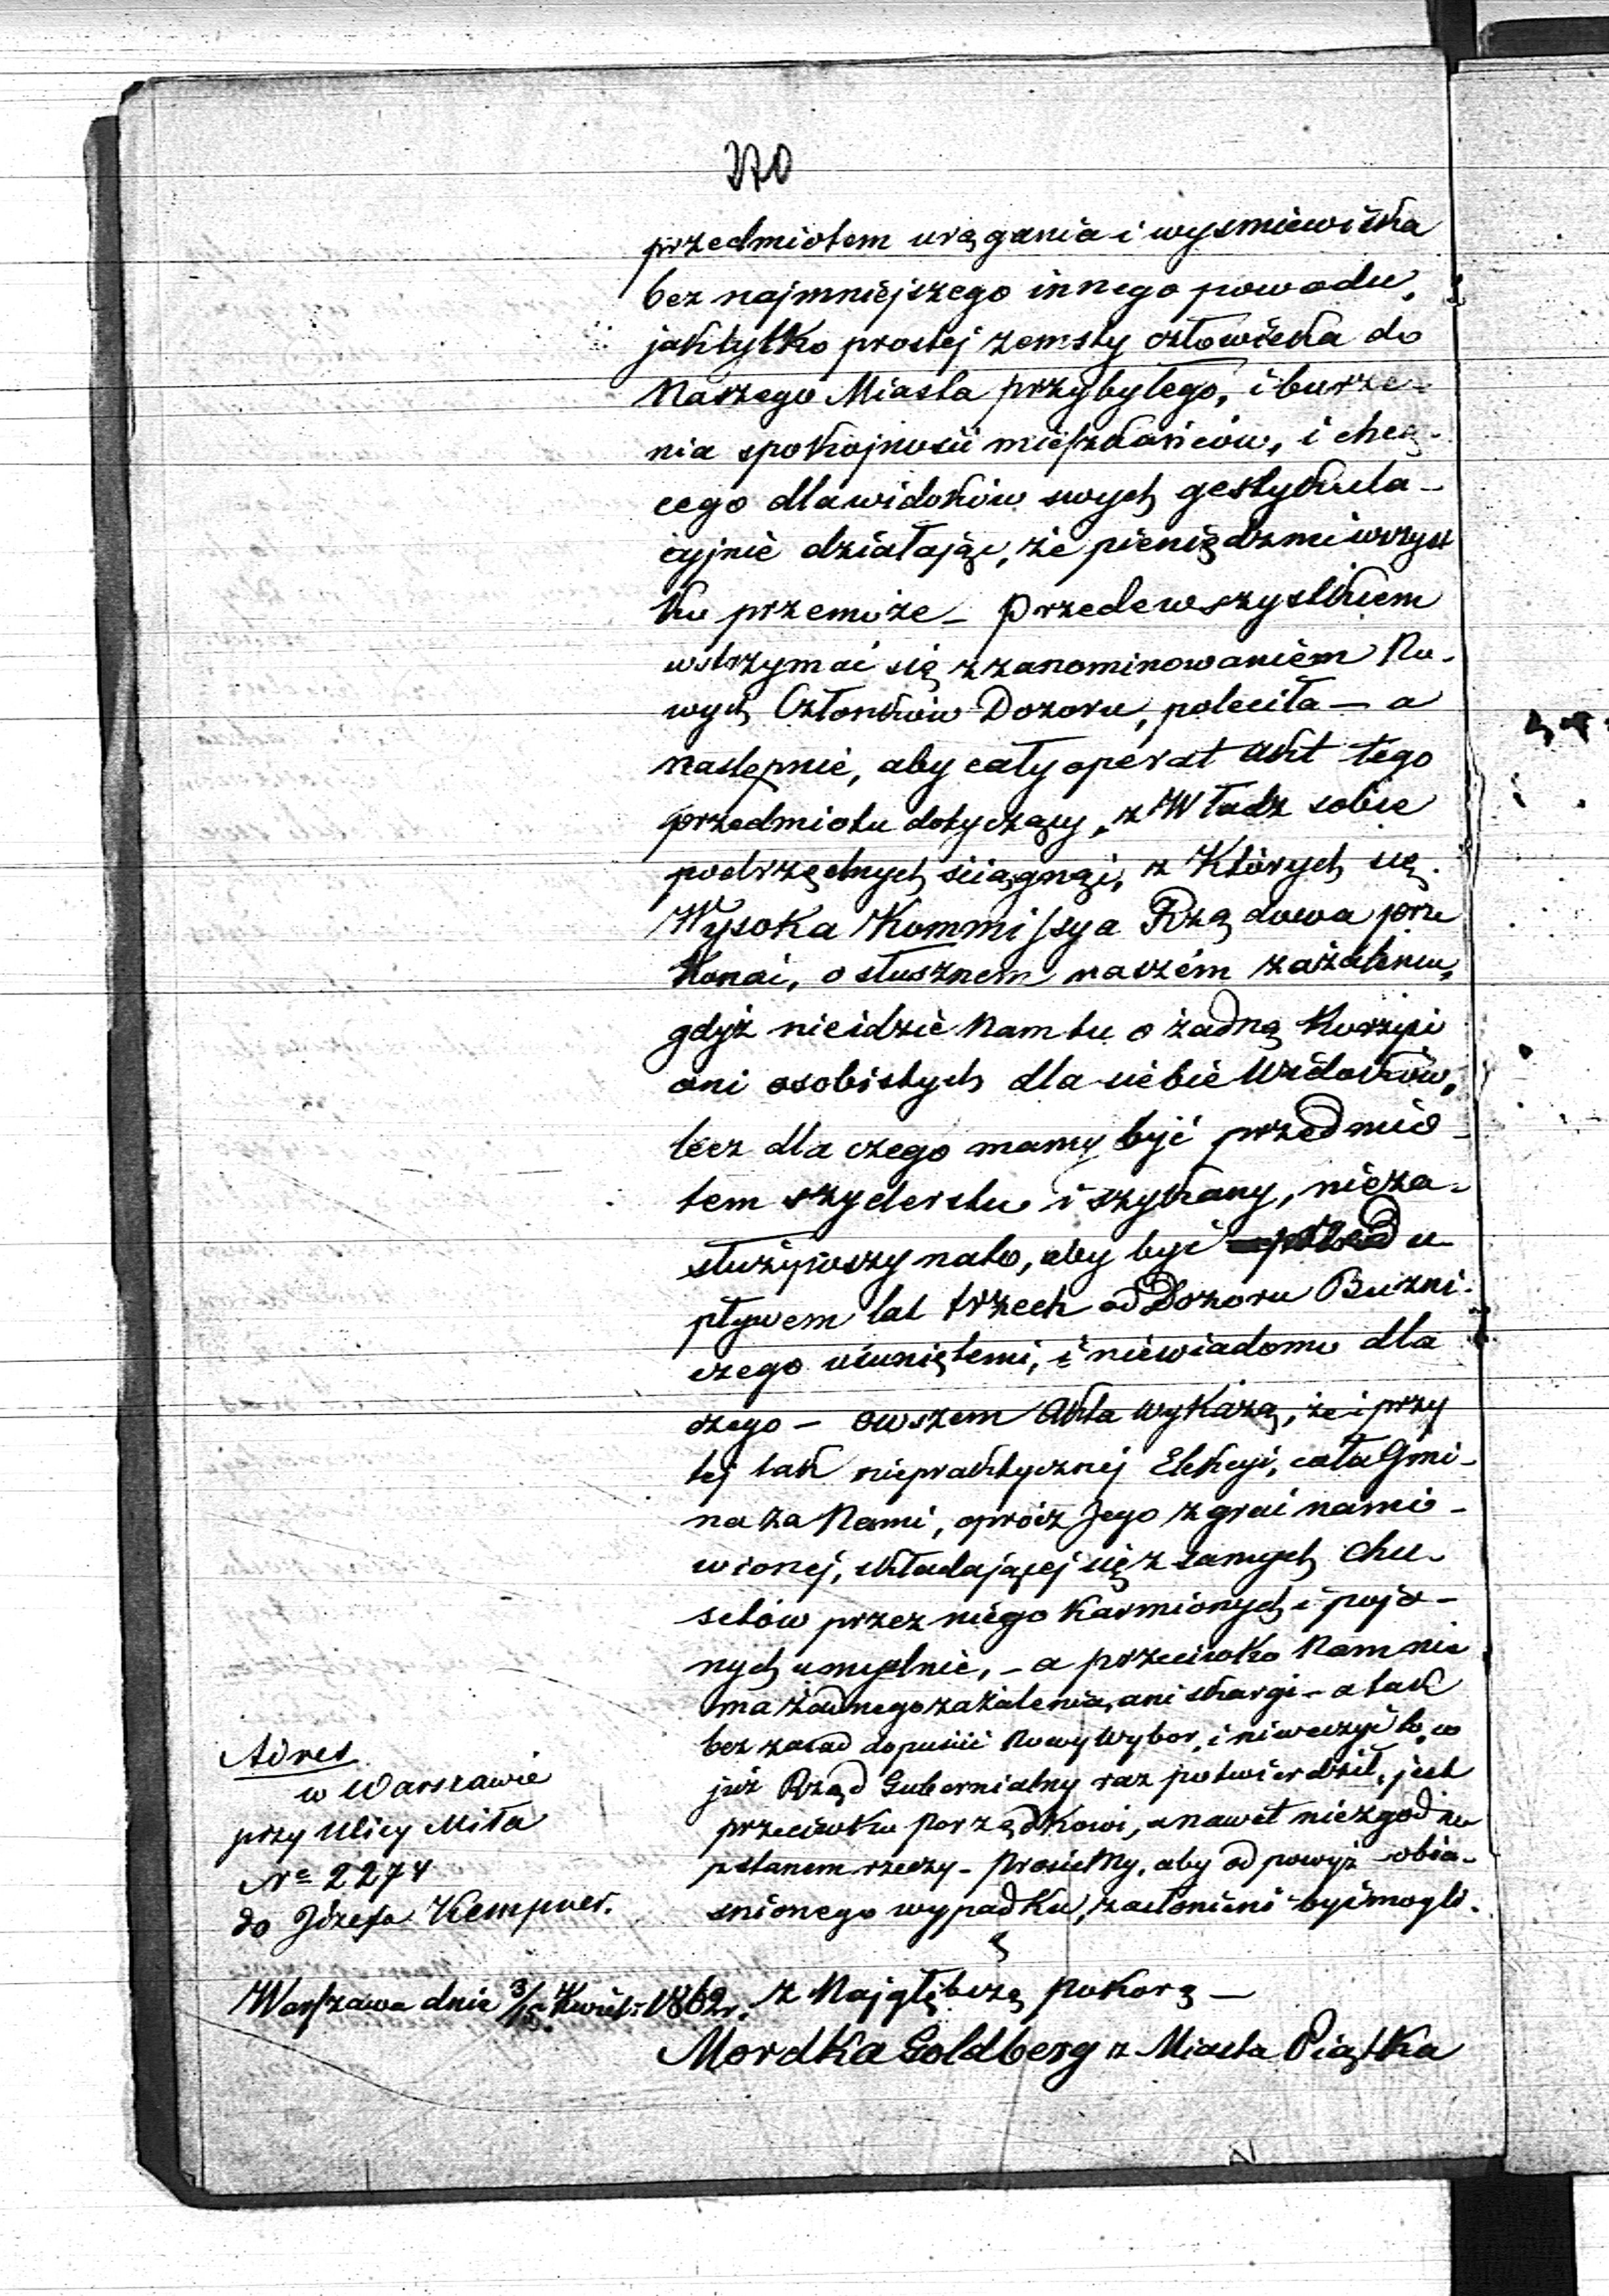 370
przedmiotem urągania i wysmiewiska
bez najmniejszego innego powodu,
jak tylko prostej zemsty człowieka do
Naszego Miasta przybyłego, i burze-
nia spokojnosci mieszkańców, i chcą-
cego dla widoków swych gestykula-
cyjnie działając, że pieniędzmi wszyst
ko przemoże - przedewszystkiem
wstrzymać się z zanominowaniem No-
wych Członków Dozoru, poleciła — a
następnie, aby cały operat akt tego
przedmiotu dotyczący, z Władz sobie
podrzędnych ściągnąć, z Których się
Wysoka Kommissya Rządowa prze
kona, o słusznem naszém zażaleniu,
gdyż nieidzie Nam tu o żadną Korzyść
ani osobistych dla siebie widoków,
lecz dla czego mamy być przedmio-
tem szyderstw i szykany, nieza-
służywszy nato, aby być u-
pływem lat trzech od Dozoru Buzni-
czego usuniętemi, i niewiadomo dla
czego — owszem Akta wykażą, że i przy
tej tak niepraktycznej Elekcyi, cała Gmi-
na za Nami, oprócz Jego zgrai namó-
wionej, składającej się z samych chu-
setów przez niego Karmionych i pojo-
nych umyślnie, - a przeciwko Nam nie
ma żadnego zażalenia, ani skargi - a tak
bez zasad dopuścić Nowy Wybor, i niweczyć to, co
już Rząd Gubernialny raz potwierdził, jest
przeciwko porządkowi, a nawet niezgodne
z stanem rzeczy - prosiemy, aby od powyż obia-
snionego wypadku, zasłonieni być mogli.
Adres
w Warszawie
przy Ulicy Miła
No 2274
do Józefa Kempner.
Warszawa dnia 3/15 Kwiet. 1862 r.
z Najgłębszą pokorą —
Mordka Goldberg z Miasta Piątka